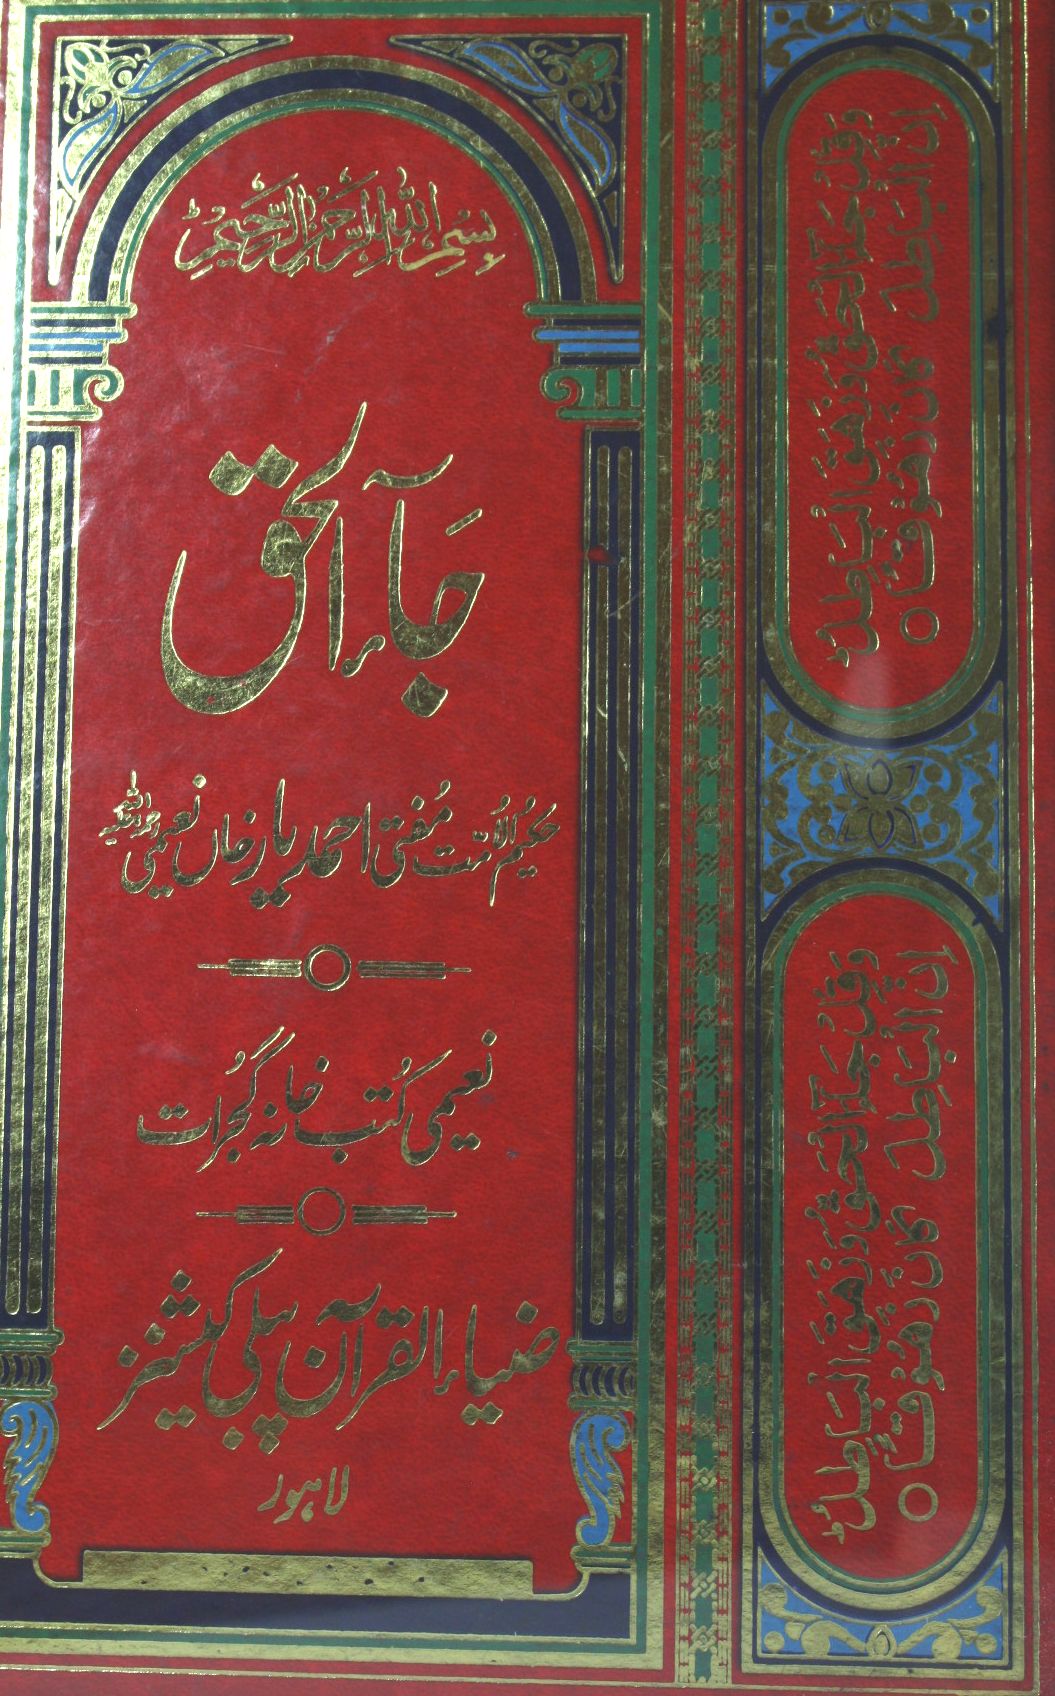 بِسْمِ اللّٰهِ الرَّحْمٰنِ الرَّحِيْمِ
جَآءَ الحق
حکیمُ الاُمّت مُفتی احمد یار خاں نعیمی رحمۃ اللہ علیہ
نعیمی کُتب خانہ گجُرات
ضیاء القرآن پبلی کیشنز
لاہور
وَقُلْ جَآءَ الْحَقُّ وَزَهَقَ الْبَاطِلُ ط
اِنَّ الْبَاطِلَ كَانَ زَهُوْقًا ○
وَقُلْ جَآءَ الْحَقُّ وَزَهَقَ الْبَاطِلُ ط
اِنَّ الْبَاطِلَ كَانَ زَهُوْقًا ○